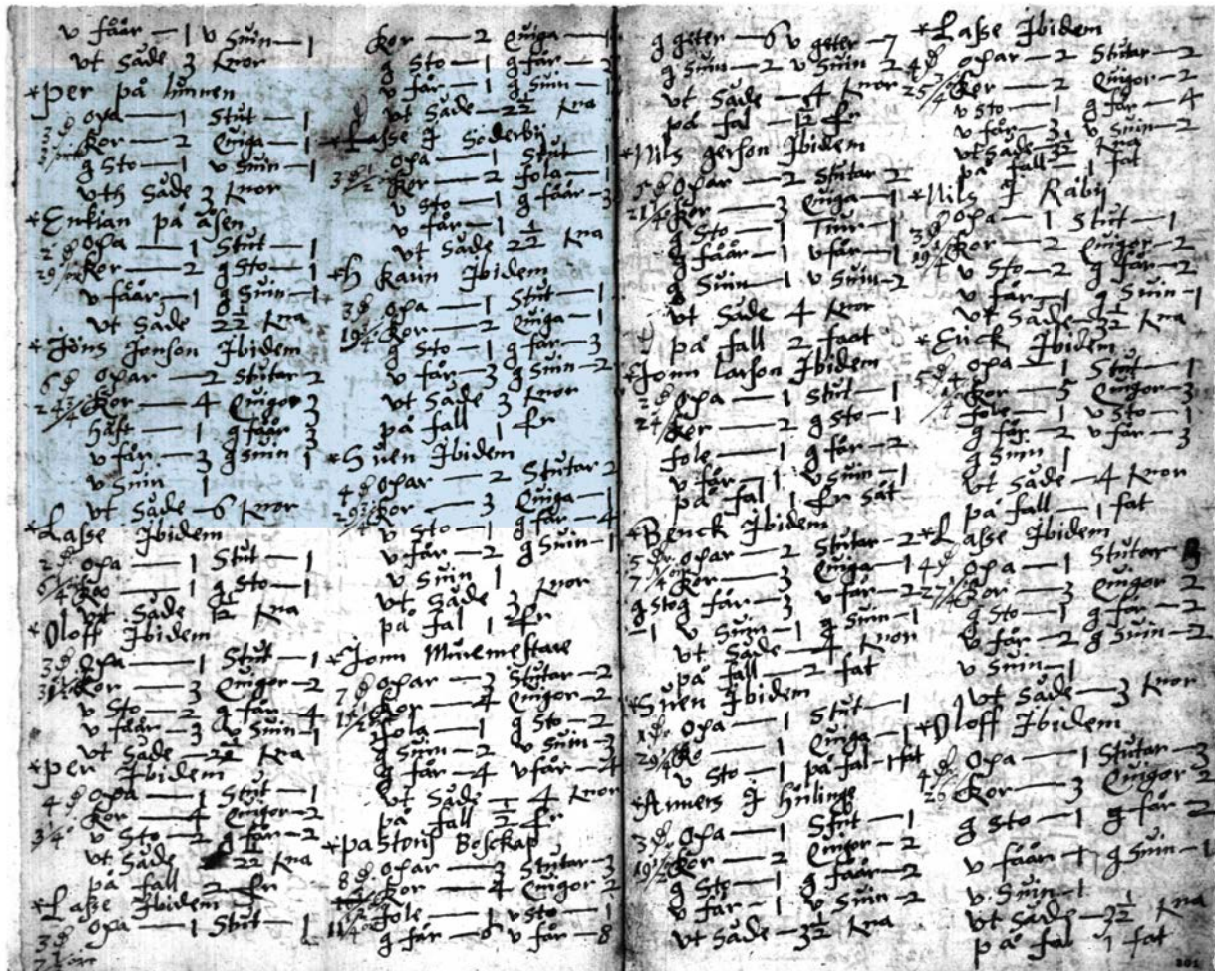 v fåår — 1 v Suin — 1
vt Såde 3 knor
*Per på lunnen
3 d opa — 1 Stut — 1
kor — 2 Quiga — 1
g Sto — 1 v Suin — 1
vth Såde 3 knor
*Enkian på åsen
2 d opa — 1 Stut — 1
kor — 2 g Sto — 1
v fåår — 1 g Suin — 1
vt Såde 2½ kna
*Jöns Jonson Ibidem
6 d opar — 2 Stutar 2
kor — 4 Quigor 3
häst — 1 g fåår 3
v får — 3 g Suin 1
v Suin 1
vt Såde — 6 knor
*Lasse Ibidem
2 d opa — 1 Stut — 1
ko — 1 g Sto — 1
vt Såde 1½ kna
*Oloff Ibidem
3 d opa — 1 Stut — 1
kor — 3 Quigor — 2
v Sto — 2 g får — 4
v fåår — 3 v Suin — 1
vt Såde — 2½ kna
*Per Ibidem
4 d opa — 1 Stut — 1
kor — 4 Quigor — 2
v Sto — 2 g får — 2
vt Såde 2½ kna
på fall — 2 fr
*Lasse Ibidem
3 d opa — 1 Stut — 1
kor — 2 Quiga — 1
g Sto — 1 g får — 2
v får — 1 g Suin — 1
vt Såde — 2½ kna
*Lasse I Söderbij
opa — 1 Stut — 1
kor — 2 fola — 1
v Sto — 1 g fåår — 3
v får — 1
vt Såde 2½ kna
*H kaün Ibidem
3 d opa — 1 Stut — 1
kor — 2 Quiga — 1
g Sto — 1 g får — 3
v får — 3 g Suin — 2
vt Såde 3 knor
på fall 1 fr
*Suen Ibidem
4 d opar — 2 Stutar 2
kor — 3 Quiga — 1
v Sto — 1 g får — 4
v får — 2 g Suin — 1
v Suin 1
vt Såde 3 knor
på fal 1 fr
*Jonn Muremestare
7 d opar — 3 Stutar — 2
kor — 4 Quigor — 2
fola — 1 g Sto — 2
g Suin — 2 v Suin — 3
g får — 4 v får — 4
vt Såde — 4 knor
på fall ½ fr
*pastons Boskap
8 d opar — 3 Stutar — 3
kor — 4 Quigor — 2
fole — 1 v Sto — 1
g får — 8 v får — 8
g geter — 6 v geter — 7
g Suin — 2 v Suin — 2
vt Såde — 4 knor
på fal — 1½ fr
*Nils gerson Ibidem
5 d opar — 2 Stutar — 2
kor — 3 Quiga — 1
g Sto — 1 Tiur — 1
g fåår — 1 v får — 1
g Suin — 1 v Suin — 2
vt Såde 4 knor
på fall 2 faat
*Jonn larson Ibidem
opa — 1 Stut — 1
kor — 2 g Sto — 1
fole — 1 g får — 2
v får — 1 v Suin — 1
på fal — 1 fr Sät
*Benck Ibidem
5 d opar — 2 Stutar — 2
kor — 3 Quiga — 1
g Sto g får — 3 v får — 2
— 1 v Suin — 1 g Suin — 1
vt Såde — 4 knor
på fall — 2 fat
*Suen Ibidem
opa — 1 Stut — 1
ko — 1 Quiga — 1
v Sto — 1 på fal — 1 fat
*Anners I hülinge
3 d opa — 1 Stut — 1
kor — 2 Quigor — 2
g Sto — 1 g fåår — 2
v får — 1 v Suin — 2
vt Såde — 3½ kna
*Lasse Ibidem
4 d opar — 2 Stutar — 2
kor — 2 Quigor — 2
v Sto — 1 g får — 4
v får — 3 v Suin — 2
vt Såde — 3½ kna
på fall — 1 fat
*Nils I Råbij
3 d opa — 1 Stut — 1
kor — 2 Quigor — 2
v Sto — 2 g får — 2
v får — 1 g Suin — 1
vt Såde — 3½ kna
*Erick Ibidem
5 d opa — 1 Stut — 1
kor — 5 Quigor — 3
fole — 1 v Sto — 1
g får — 2 v får — 3
g Suin 1
vt Såde — 4 knor
på fall — 1 fat
*Lasse Ibidem
4 d opa — 1 Stutar 3
kor — 3 Quigor 2
g Sto — 1 g får — 2
v får — 2 g Suin — 2
v Suin — 1
vt Såde — 3 knor
*Oloff Ibidem
4 d opa — 1 Stutar — 3
kor — 3 Quigor 2
g Sto — 1 g får — 2
v fåår — 1 g Suin — 1
v Suin — 1
vt Såde — 3½ kna
på fal 1 fat